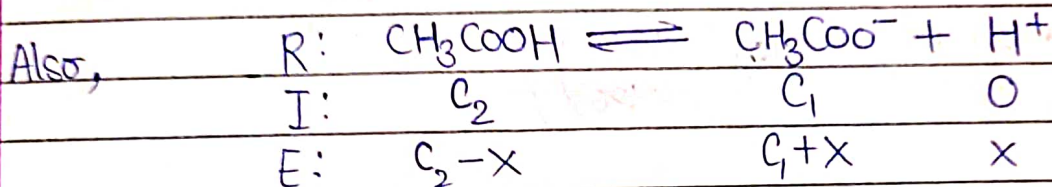 Also, R: CH₃COOH ⇌ CH₃COO⁻ + H⁺
I: C₂ C₁ O
E: C₂-x C₁+x x